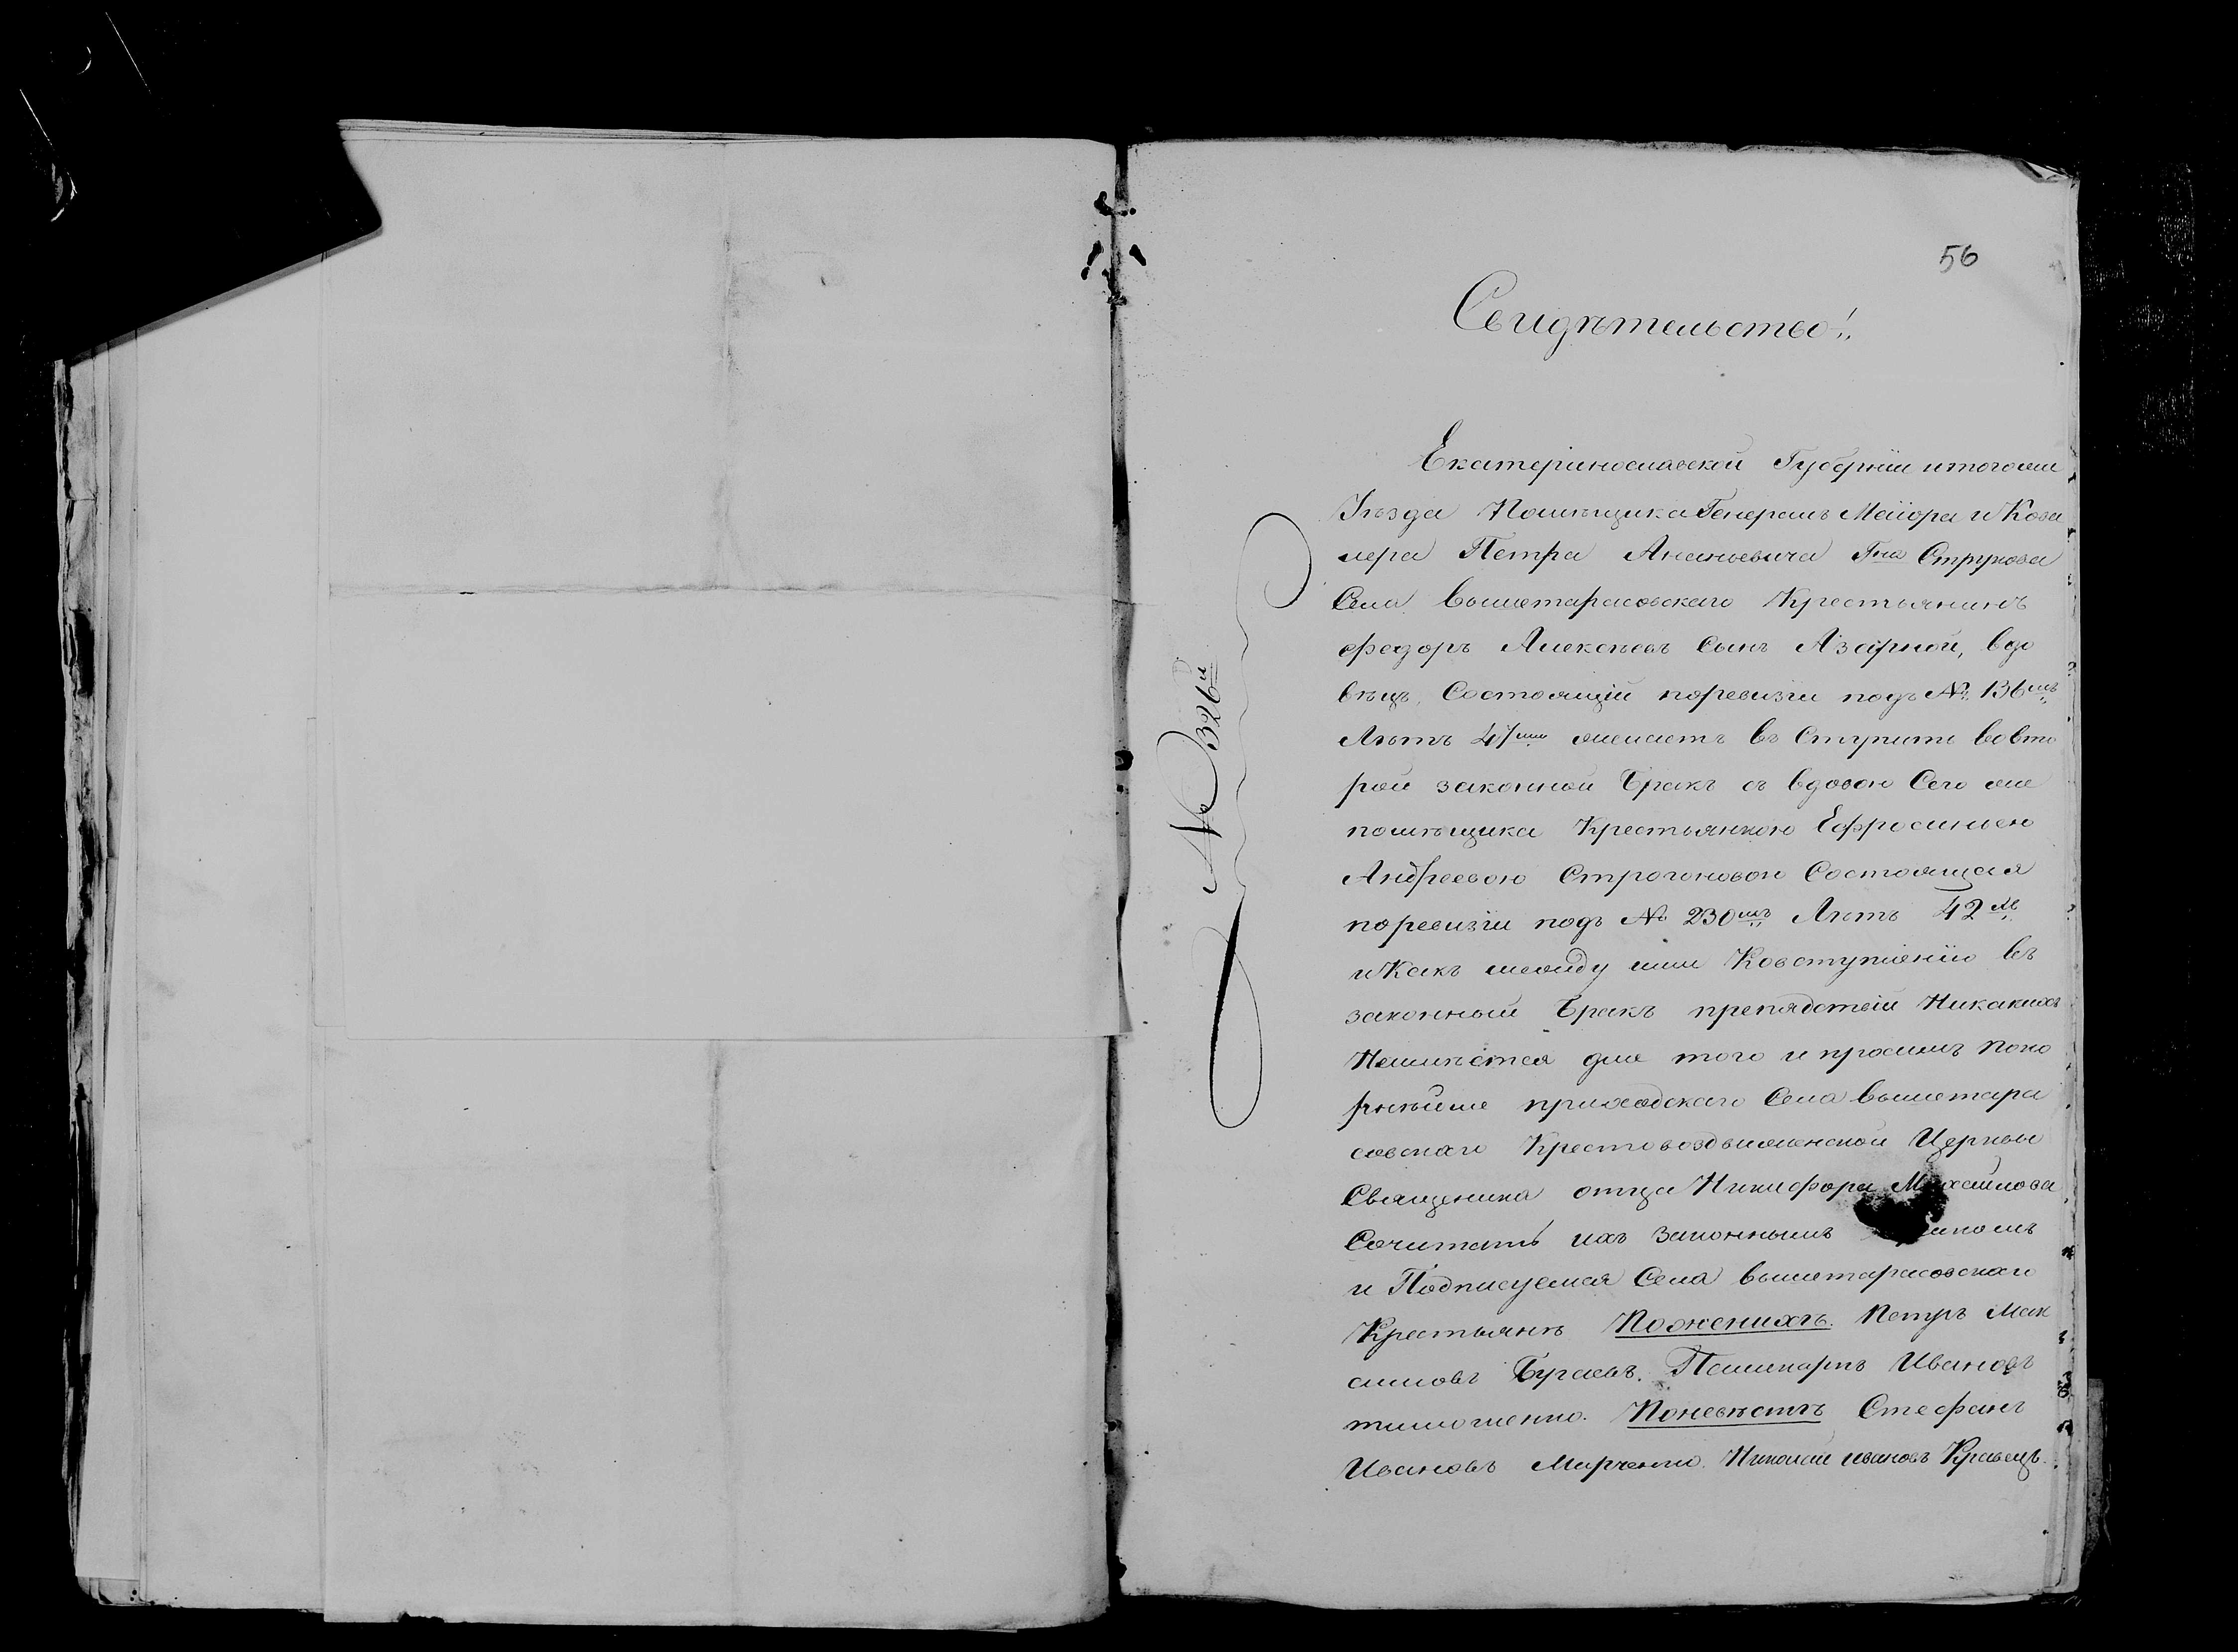 56
Свидѣтельство!
№ 326й
Екатериносласкои Губернïи итогоже
Уѣзда Помѣщика Генералъ Маïора и Кова
лера Петра Ананьевича Гна Струкова
Села вышетарасовскаго Крестьянинъ
федоръ Алексѣевъ Сынъ Азарной, вдо
вѣцъ, Состоящïй поревизïи подъ № 136мъ
Лѣтъ 47ми желаетъ въ Ступить вовто
рой законной Бракъ съ вдовою Сего же
помѣщика Крестьянкою Ефросиньею
Андреевою Строгоновою Состоящая
поревизïи подъ № 230мъ Лѣтъ 42хъ
и Какъ между ими Ковступленïю въ
законный Бракъ препядствïй Никакихъ
Неимѣется для того и просимъ поко
рнѣйше приходскаго Села вышетара
совскаго Крестовоздвиженской Церкви
Священика отца Никифора Михайлова
Сочитать ихъ Законнымъ
и Подписуемся Села вышетарасовскаго
Крестьянѣ Поженихѣ. Петръ Мак
симовъ Бураевъ. Иванов
тимошенко. Поневѣстѣ Стефанъ
Ивановъ Марченко. Николай ивановъ Кравецъ.